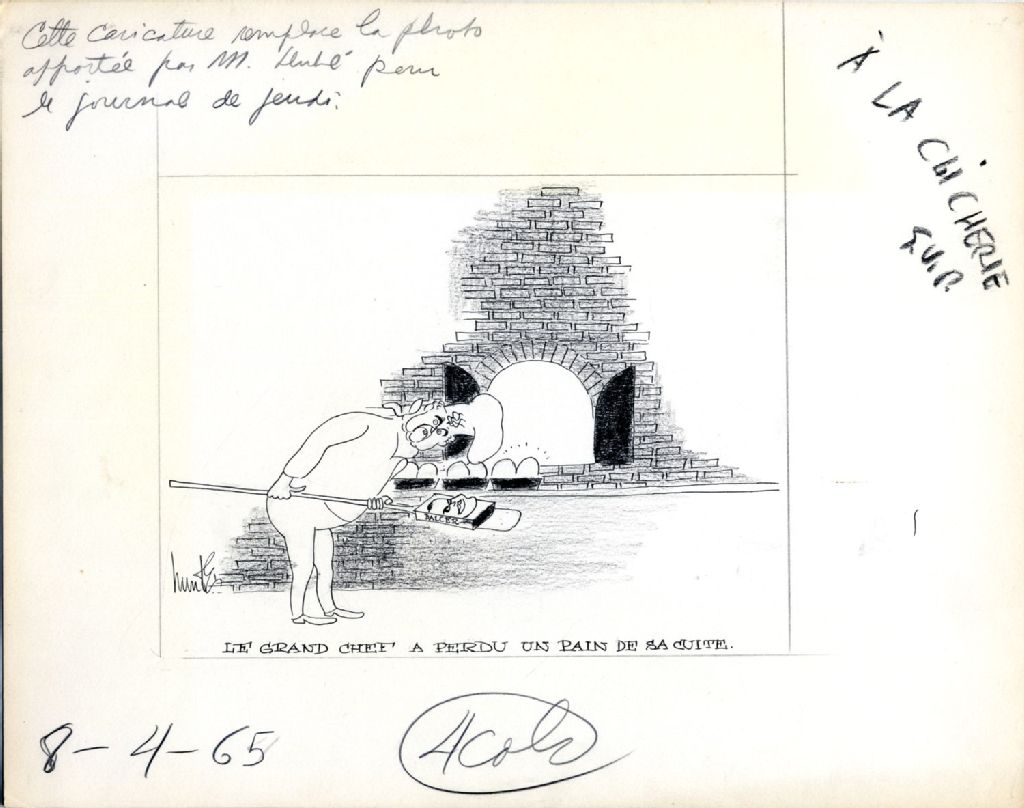 Cette caricature remplace la photo
apportée par M. Hubé pour
le journal de jeudi.
À LA CLICHERIE
S.V.P.
PALCER
LE GRAND CHEF A PERDU UN PAIN DE SA CUITE.
8-4-65
4 cols